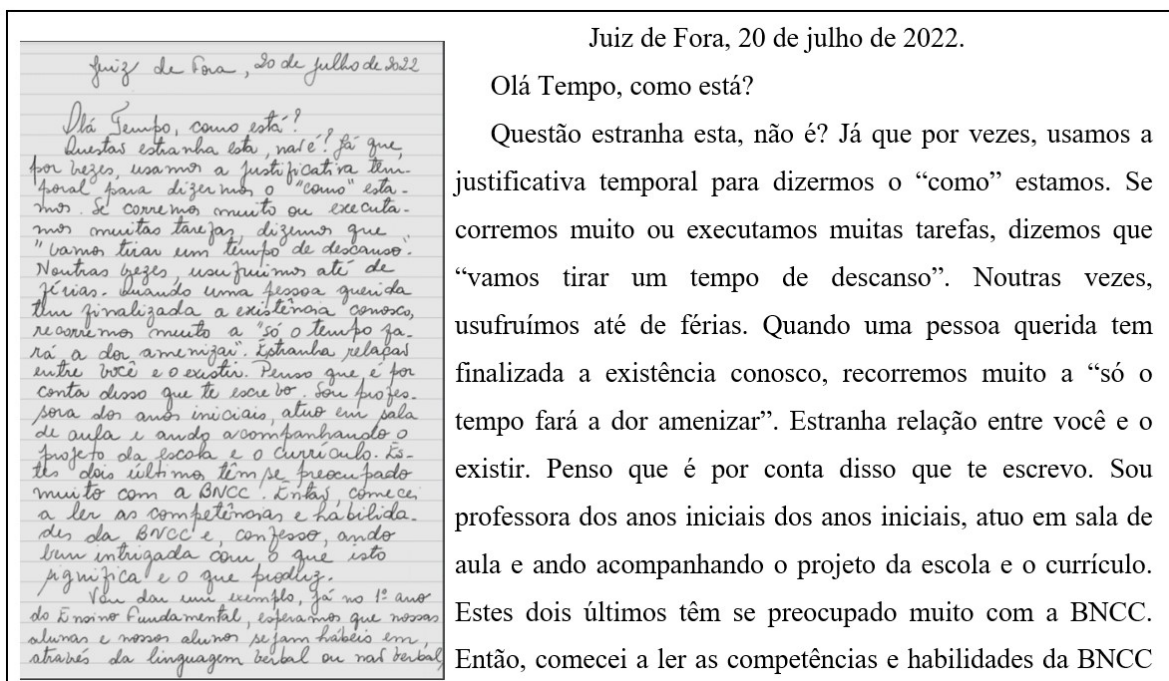 Juiz de Fora, 20 de julho de 2022
Olá Tempo, como está?
Questão estranha esta, não é? Já que,
por vezes, usamos a justificativa tem-
poral para dizermos o "como" esta-
mos. Se corremos muito ou executa-
mos muitas tarefas, dizemos que
"vamos tirar um tempo de descanso".
Noutras vezes, usufruimos até de
férias. Quando uma pessoa querida
tem finalizada a existência conosco,
recorremos muito a "só o tempo fa-
rá a dor amenizar". Estranha relação
entre você e o existir. Penso que é por
conta disso que te escrevo. Sou profes-
sora dos anos iniciais, atuo em sala
de aula e ando acompanhando o
projeto da escola e o currículo. Es-
tes dois últimos têm se preocupado
muito com a BNCC. Então, comecei
a ler as competências e habilida-
des da BNCC e, confesso, ando
bem intrigada com o que isto
significa e o que produz.
Vou dar um exemplo, já no 1º ano
do Ensino Fundamental, esperamos que nossas
alunas e nossos alunos sejam hábeis em,
através da linguagem verbal ou não verbal,
Juiz de Fora, 20 de julho de 2022.
Olá Tempo, como está?
Questão estranha esta, não é? Já que por vezes, usamos a
justificativa temporal para dizermos o “como” estamos. Se
corremos muito ou executamos muitas tarefas, dizemos que
“vamos tirar um tempo de descanso”. Noutras vezes,
usufruímos até de férias. Quando uma pessoa querida tem
finalizada a existência conosco, recorremos muito a “só o
tempo fará a dor amenizar”. Estranha relação entre você e o
existir. Penso que é por conta disso que te escrevo. Sou
professora dos anos iniciais dos anos iniciais, atuo em sala de
aula e ando acompanhando o projeto da escola e o currículo.
Estes dois últimos têm se preocupado muito com a BNCC.
Então, comecei a ler as competências e habilidades da BNCC